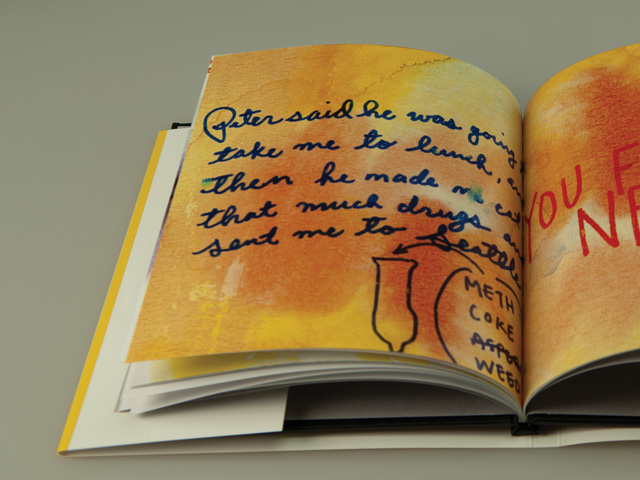 Peter said he was going
take me to lunch,
then he made me eat
that much drugs
sent me to Seattle
METH
COKE
WEED
YOU